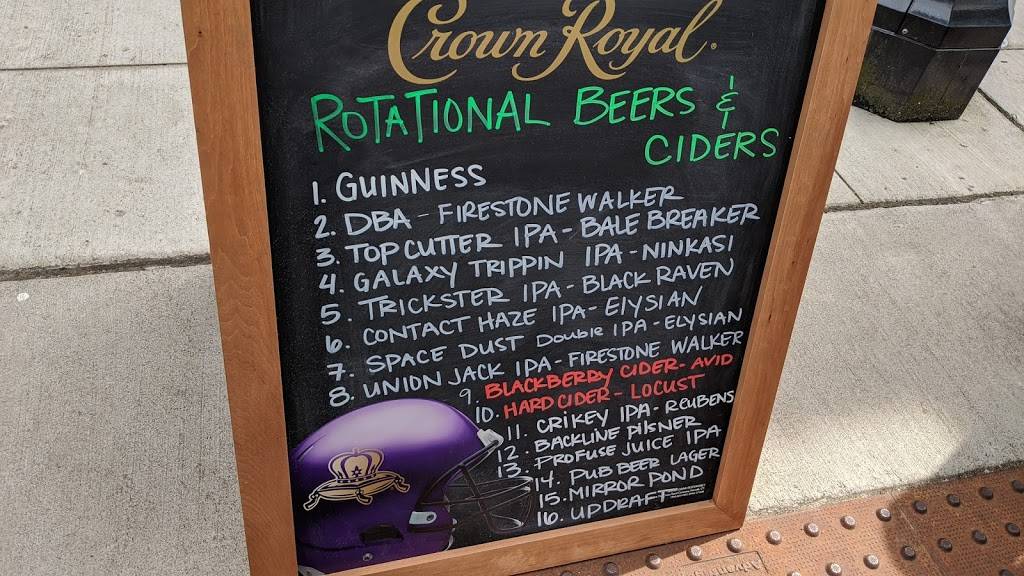 Crown Royal
ROTATIONAL BEERS &
CIDERS
1. GUINNESS
2. DBA - FIRESTONE WALKER
3. TOP CUTTER IPA - BALE BREAKER
4. GALAXY TRIPPIN IPA - NINKASI
5. TRICKSTER IPA - BLACK RAVEN
6. CONTACT HAZE IPA - ElYSIAN
7. SPACE DUST Double IPA - ELYSIAN
8. UNION JACK IPA - FIRESTONE WALKER
9. BLACKBERBY CIDER - AVID
10. HARD CIDER - LOCUST
11. CRIKEY IPA - REUBENS
12. BACKLINE PILSNER
13. PROFUSE JUICE IPA
14. PUB BEER LAGER
15. MIRROR POND
16. UPDRAFT